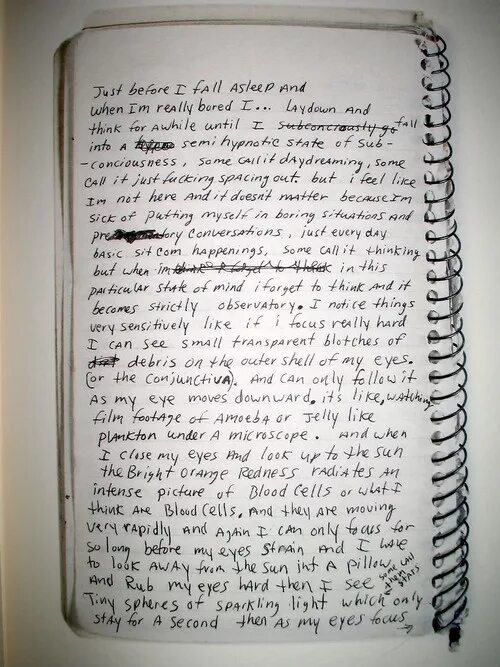 Just before I fall asleep and
when Im really bored I... laydown And
think for awhile until I subconciously go fall
into a semi hypnotic state of sub-
-conciousness, some call it daydreaming, some
call it just fucking spacing out. but i feel like
Im not here And it doesnt matter because Im
sick of putting myself in boring situations and
pre ory conversations, just every day
basic sit com happenings, some call it thinking
but when im in this
particular state of mind i forget to think And it
becomes strictly observatory. I notice things
very sensitively like if i focus really hard
I can see small transparent blotches of
debris on the outer shell of my eyes.
(or the conjunctiva). And can only follow it
As my eye moves downward, its like, watching
film footage of Amoeba or Jelly like
plankton under A microscope. And when
I close my eyes And look up to the sun
the Bright orange Redness radiates An
intense picture of Blood Cells or what I
think Are Blood Cells. And they are moving
very rapidly And again I can only focus for
so long before my eyes strain And I have
to look away from the sun int A pillow
And Rub my eyes hard then I see some call them stars
Tiny spheres of sparkling light which only
stay for A second then As my eyes focus →